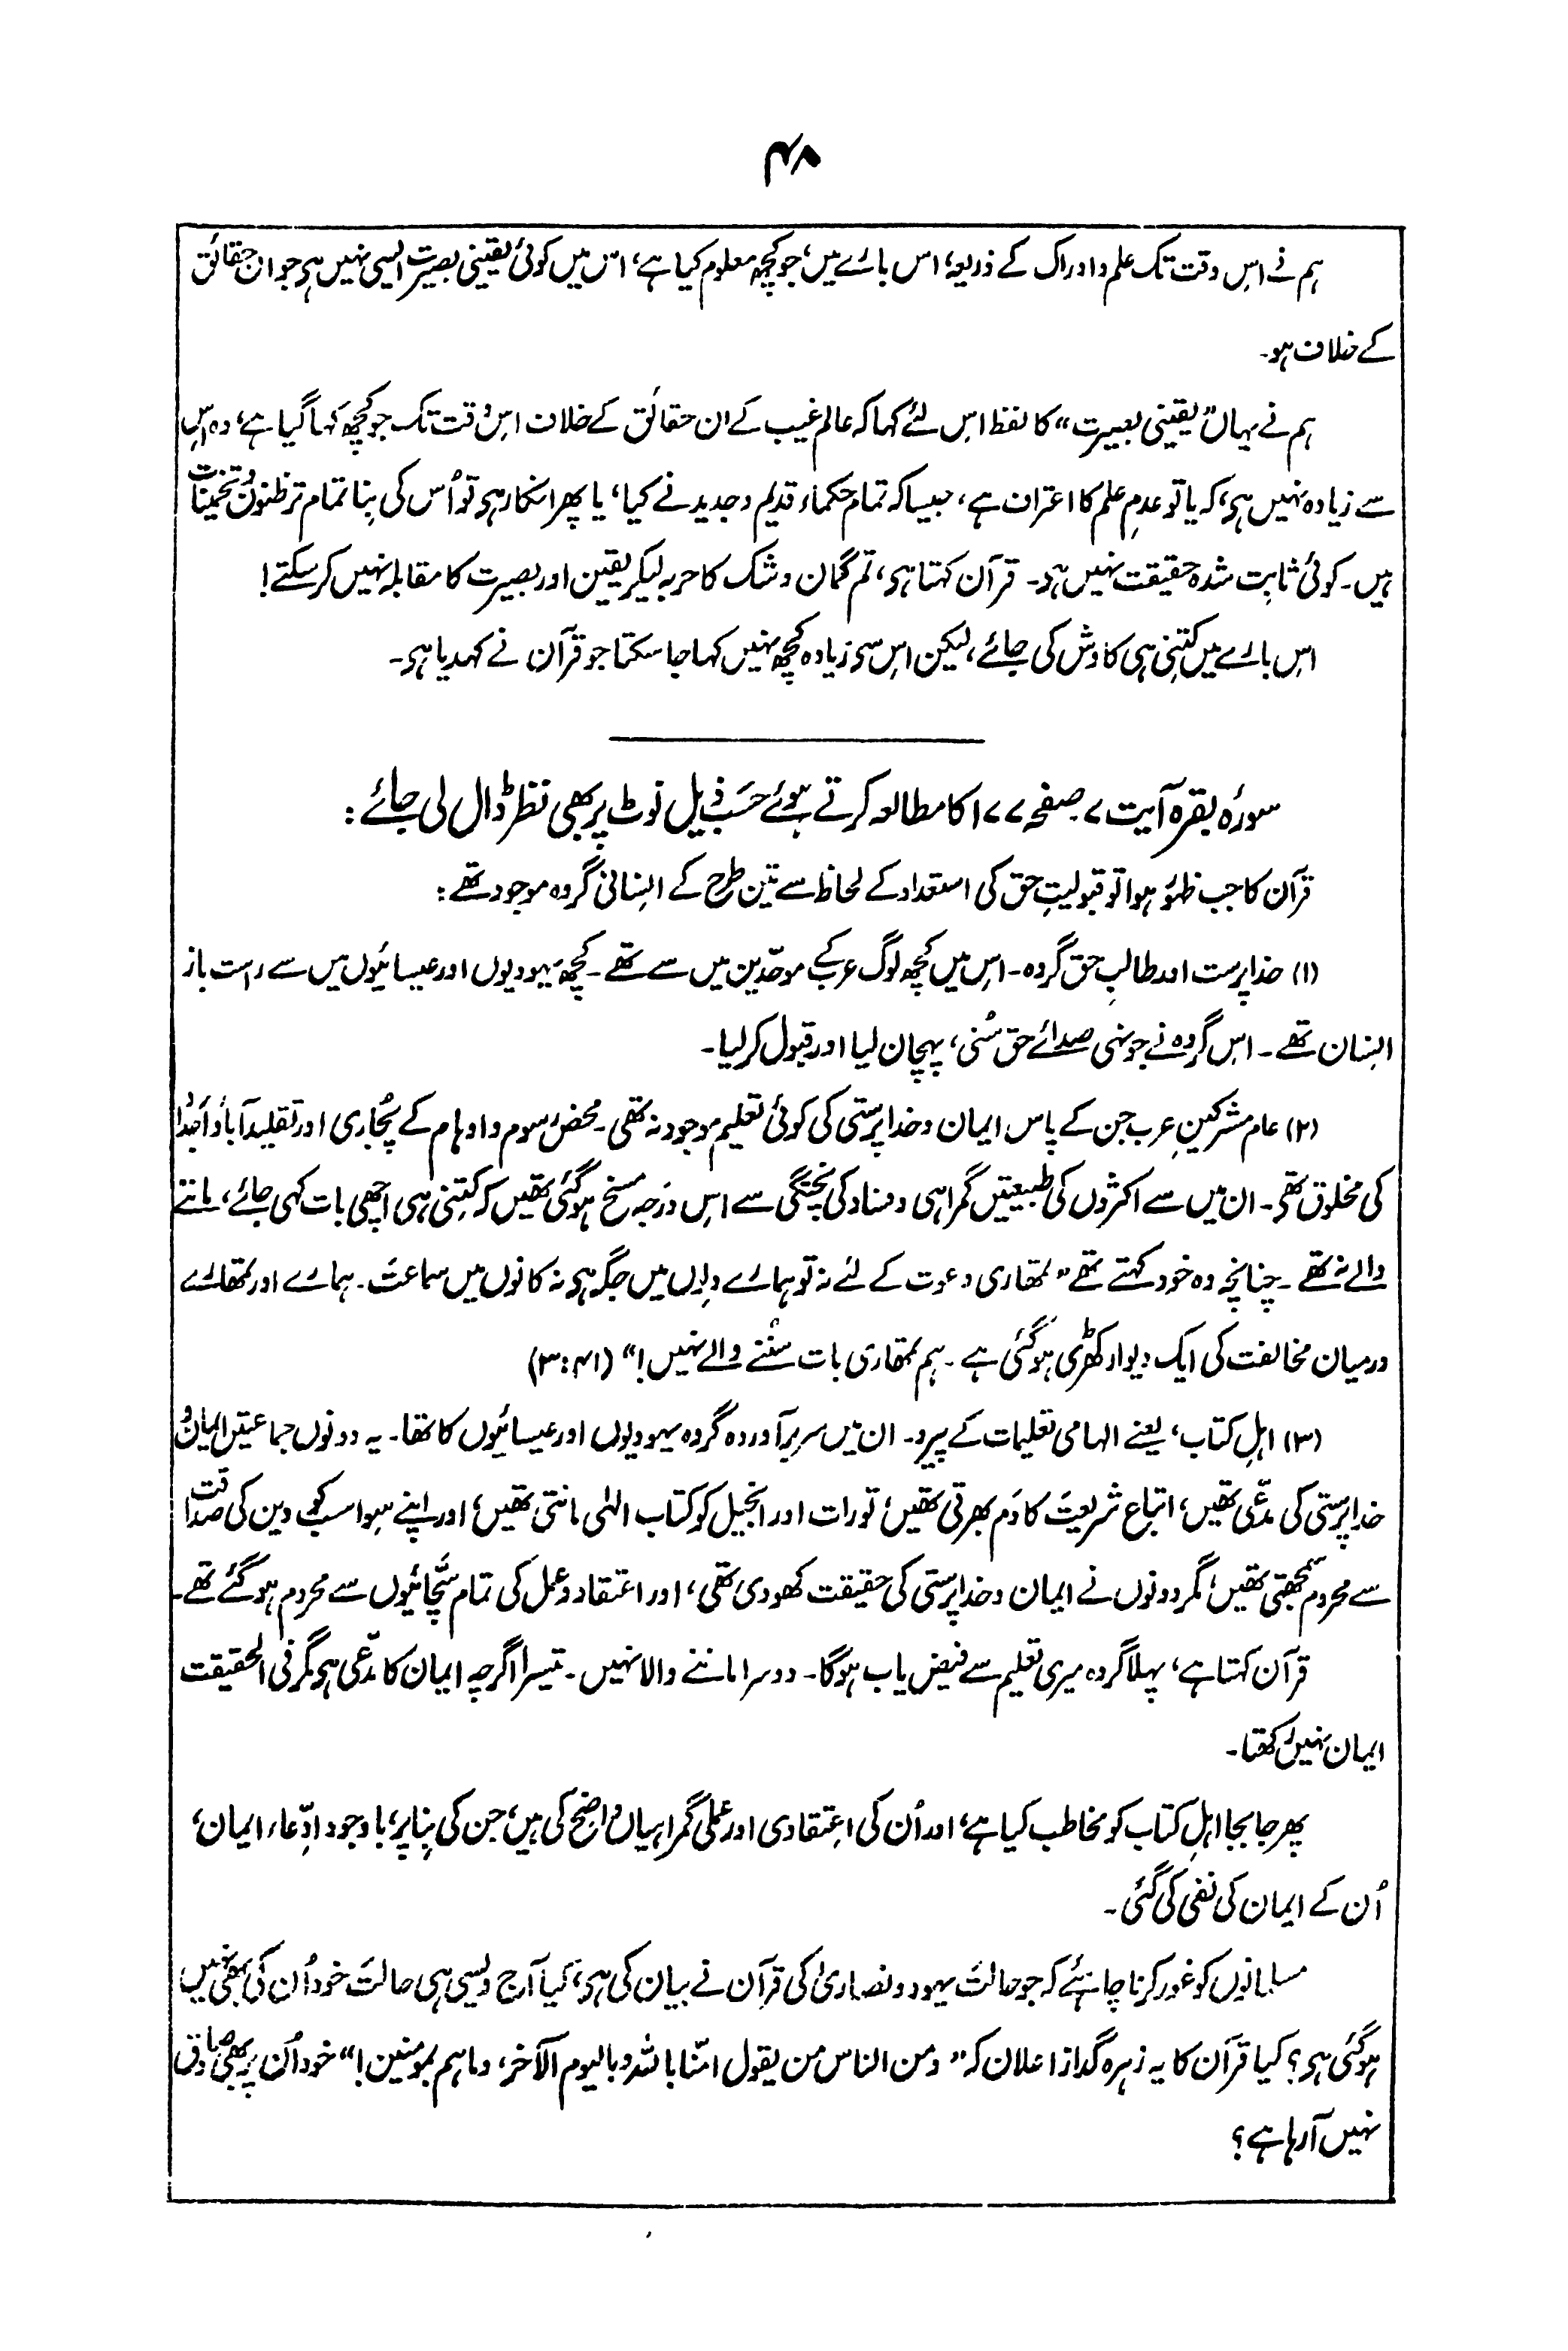 ۴۸
ہم نے اِس وقت تک علم و ادراک کے ذریعہ، اس بارے میں، جو کچھ معلوم کیا ہے، اس میں کوئی یقینی بصیرت ایسی نہیں ہی جو ان حقائق
کے خلاف ہو۔
ہم نے یہاں "یقینی بصیرت" کا لفظ اِس لئے کہا کہ عالم غیب کے ان حقائق کے خلاف اِس وقت تک جو کچھ کہا گیا ہے، وہ اِس
سے زیادہ نہیں ہی، کہ یا تو عدمِ علم کا اعتراف ہے، جیسا کہ تمام حکماء قدیم و جدید نے کیا، یا پھر انکار ہی تو اُس کی بنا تمام تر ظنون و تخمینات
ہیں۔ کوئی ثابت شدہ حقیقت نہیں ہی۔ قرآن کہتا ہی، تم گمان و شک کا حربہ لیکر یقین اور بصیرت کا مقابلہ نہیں کر سکتے!
اِس بارے میں کتنی ہی کاوش کی جائے، لیکن اِس سی زیادہ کچھ نہیں کہا جا سکتا جو قرآن نے کہدیا ہی۔
سورۂ بقرہ آیت ۷ صفحہ ۱۷۷ کا مطالعہ کرتے ہوئے حسَب ذیل نوٹ پر بھی نظر ڈال لی جائے:
قرآن کا جب ظہور ہوا تو قبولیتِ حق کی استعداد کے لحاظ سے تین طرح کے انسانی گروہ موجود تھے:
(۱) خدا پرست اور طالبِ حق گروہ۔ اِس میں کچھ لوگ عرب کے موحّدین میں سے تھے۔ کچھ یہودیوں اور عیسائیوں میں سے راست باز
انسان تھے۔ اِس گروہ نے جونہی صدائے حق سُنی، پہچان لیا اور قبول کر لیا۔
(۲) عام مشرکینِ عرب جن کے پاس ایمان و خدا پرستی کی کوئی تعلیم موجود نہ تھی۔ محض رسوم و اوہام کے پُجاری اور تقلیدِ آباؤ اَجداد
کی مخلوق تھی۔ ان میں سے اکثروں کی طبیعتیں گمراہی و فساد کی پختگی سے اِس درَجہ مسخ ہو گئی تھیں کہ کتنی ہی اچھی بات کہی جائے، ماننے
والے نہ تھے۔ چنانچہ وہ خود کہتے تھے "تمھاری دعوت کے لئے نہ تو ہمارے دلوں میں جگہ ہی نہ کانوں میں سماعت۔ ہمارے اور تمھارے
درمیان مخالفت کی ایک دیوار کھڑی ہو گئی ہے۔ ہم تمھاری بات سُننے والے نہیں!" (۴۱:۳)
(۳) اہلِ کتاب، یعنے الہامی تعلیمات کے پیرو۔ ان میں سر برآوردہ گروہ یہودیوں اور عیسائیوں کا تھا۔ یہ دونوں جماعتیں ایمان و
خدا پرستی کی مدّعی تھیں، اتباعِ شریعت کا دَم بھرتی تھیں، تورات اور انجیل کو کتاب الٰہی مانتی تھیں، اور اپنے سِوا سب کو دین کی صداقت
سے محروم سمجھتی تھیں؛ مگر دونوں نے ایمان و خدا پرستی کی حقیقت کھو دی تھی، اور اعتقاد و عمل کی تمام سچّائیوں سے محروم ہو گئے تھے۔
قرآن کہتا ہے، پہلا گروہ میری تعلیم سے فیض یاب ہوگا۔ دوسرا ماننے والا نہیں۔ تیسرا اگرچہ ایمان کا مدّعی ہی مگر فی الحقیقت
ایمان نہیں رکھتا۔
پھر جا بجا اہلِ کتاب کو مخاطب کیا ہے، اور اُن کی اعتقادی اور عملی گمراہیاں واضح کی ہیں، جن کی بنا پر، با وجود ادّعاءِ ایمان،
اُن کے ایمان کی نفی کی گئی۔
مسلمانوں کو غور کرنا چاہئے کہ جو حالت یہود و نصاریٰ کی قرآن نے بیان کی ہی، کیا آج ویسی ہی حالت خود اُن کی بھی نہیں
ہو گئی ہی؟ کیا قرآن کا یہ زہرہ گداز اعلان کہ "ومن الناس من یقول امنّا باللہ وبالیوم الآخر، وما ھم بمومنین!" خود اُن پر بھی صادق
نہیں آ رہا ہے؟